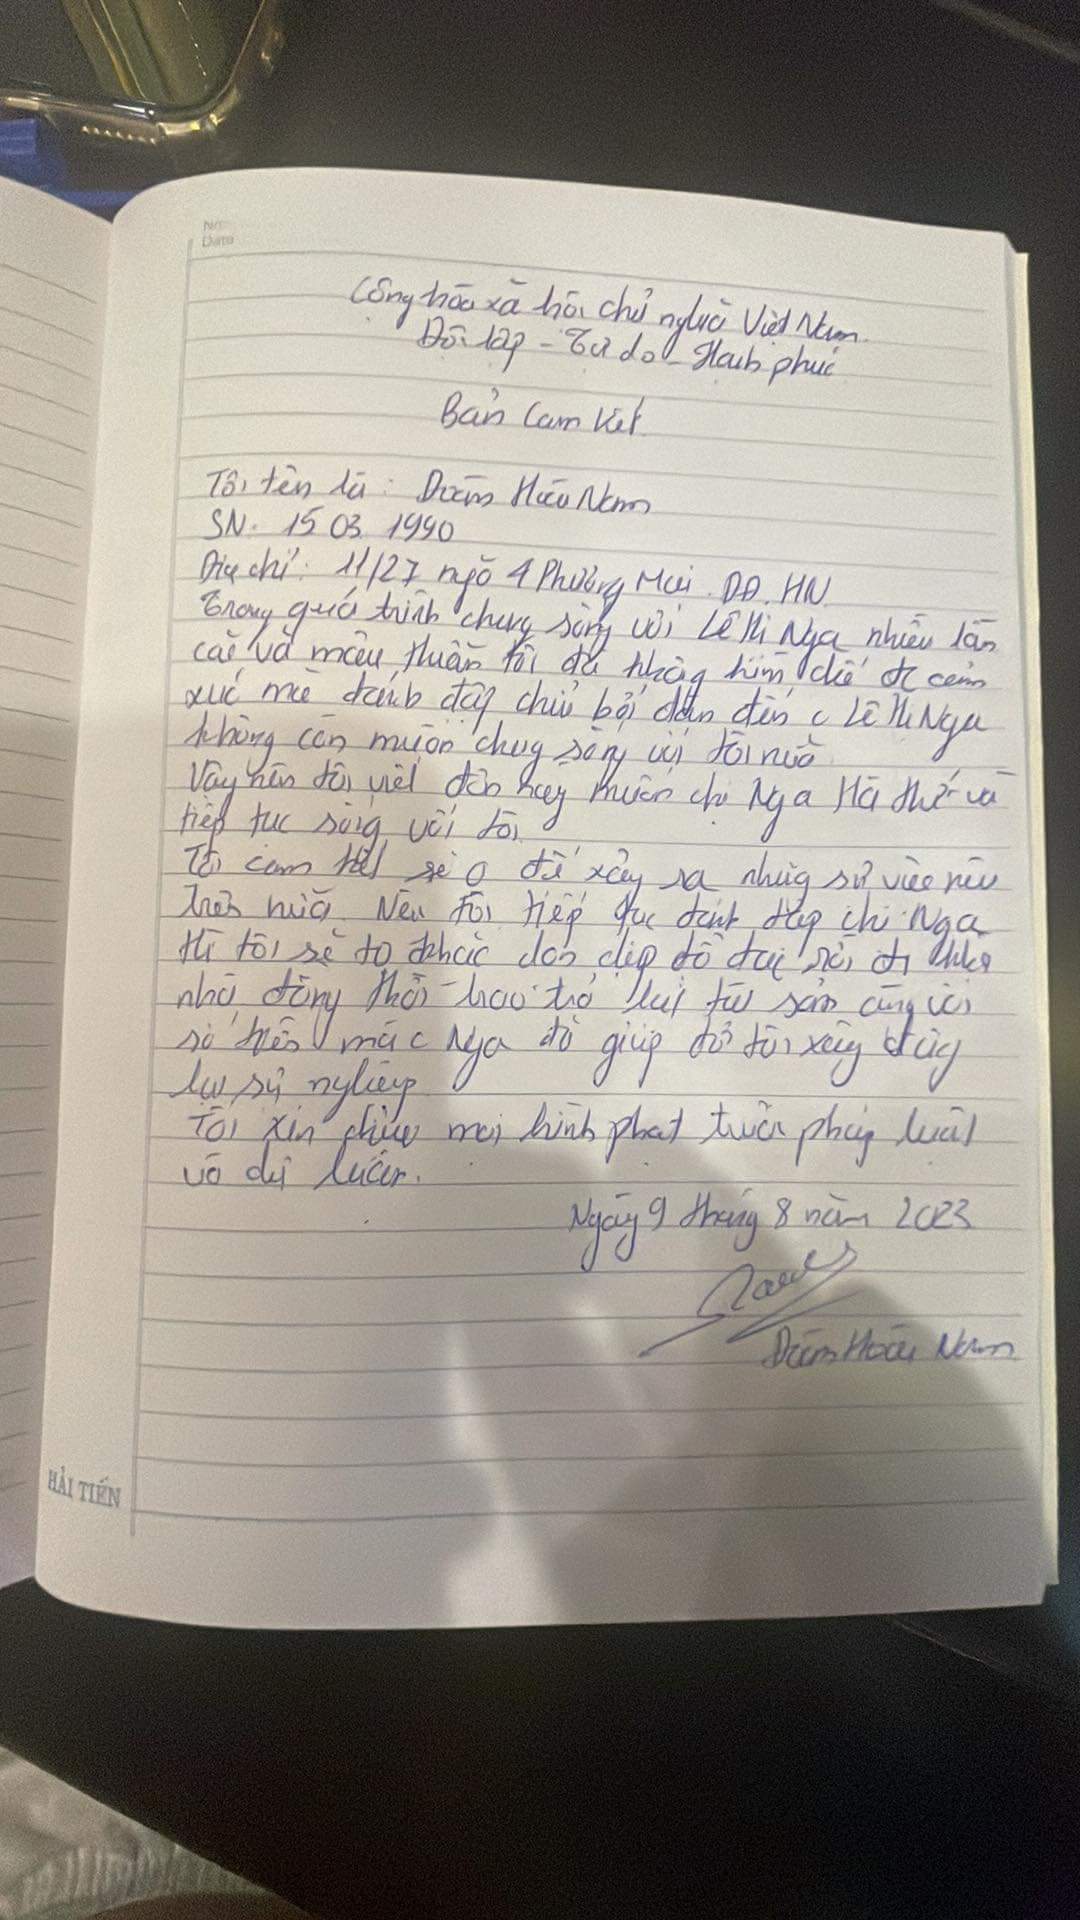 No.
Date
Cộng hòa xã hội chủ nghĩa Việt Nam
Độc lập - Tự do - Hạnh phúc
Bản Cam Kết
Tôi tên là: Đoàn Hữu Nam
SN. 15 03 1990
Địa chỉ: 11/27 ngõ 4 Phương Mai. DĐ. HN
Trong quá trình chung sống với Lê Thị Nga nhiều lần
cãi vã mâu thuẫn tôi đã không kìm chế đc cảm
xúc mà đánh đập chửi bới dẫn đến c Lê Thị Nga
không còn muốn chung sống với tôi nữa
Vậy nên tôi viết đơn này muốn chị Nga tha thứ và
tiếp tục sống với tôi
Tôi cam kết sẽ 0 để xảy ra những sự việc nêu
trên nữa. Nếu tôi tiếp tục đánh đập chị Nga
thì tôi sẽ tự khắc dọn dẹp đồ đạc rời đi khỏi
nhà đồng thời trao trả lại tài sản cùng với
số tiền mà c Nga đã giúp đỡ tôi xây dựng
lại sự nghiệp
Tôi xin chịu mọi hình phạt trước pháp luật
và dư luận.
Ngày 9 tháng 8 năm 2023
Nam
HẢI TIẾN